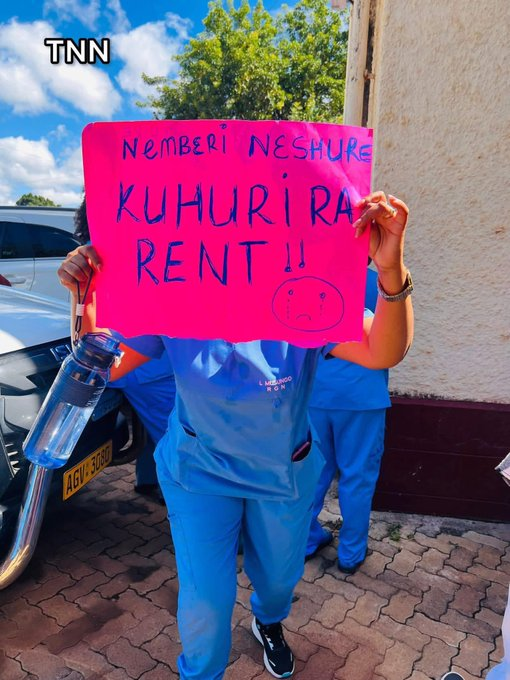 TNN
NEMBERI NESHURE
KUHURIRA
RENT !!
RGN
AGV·3080